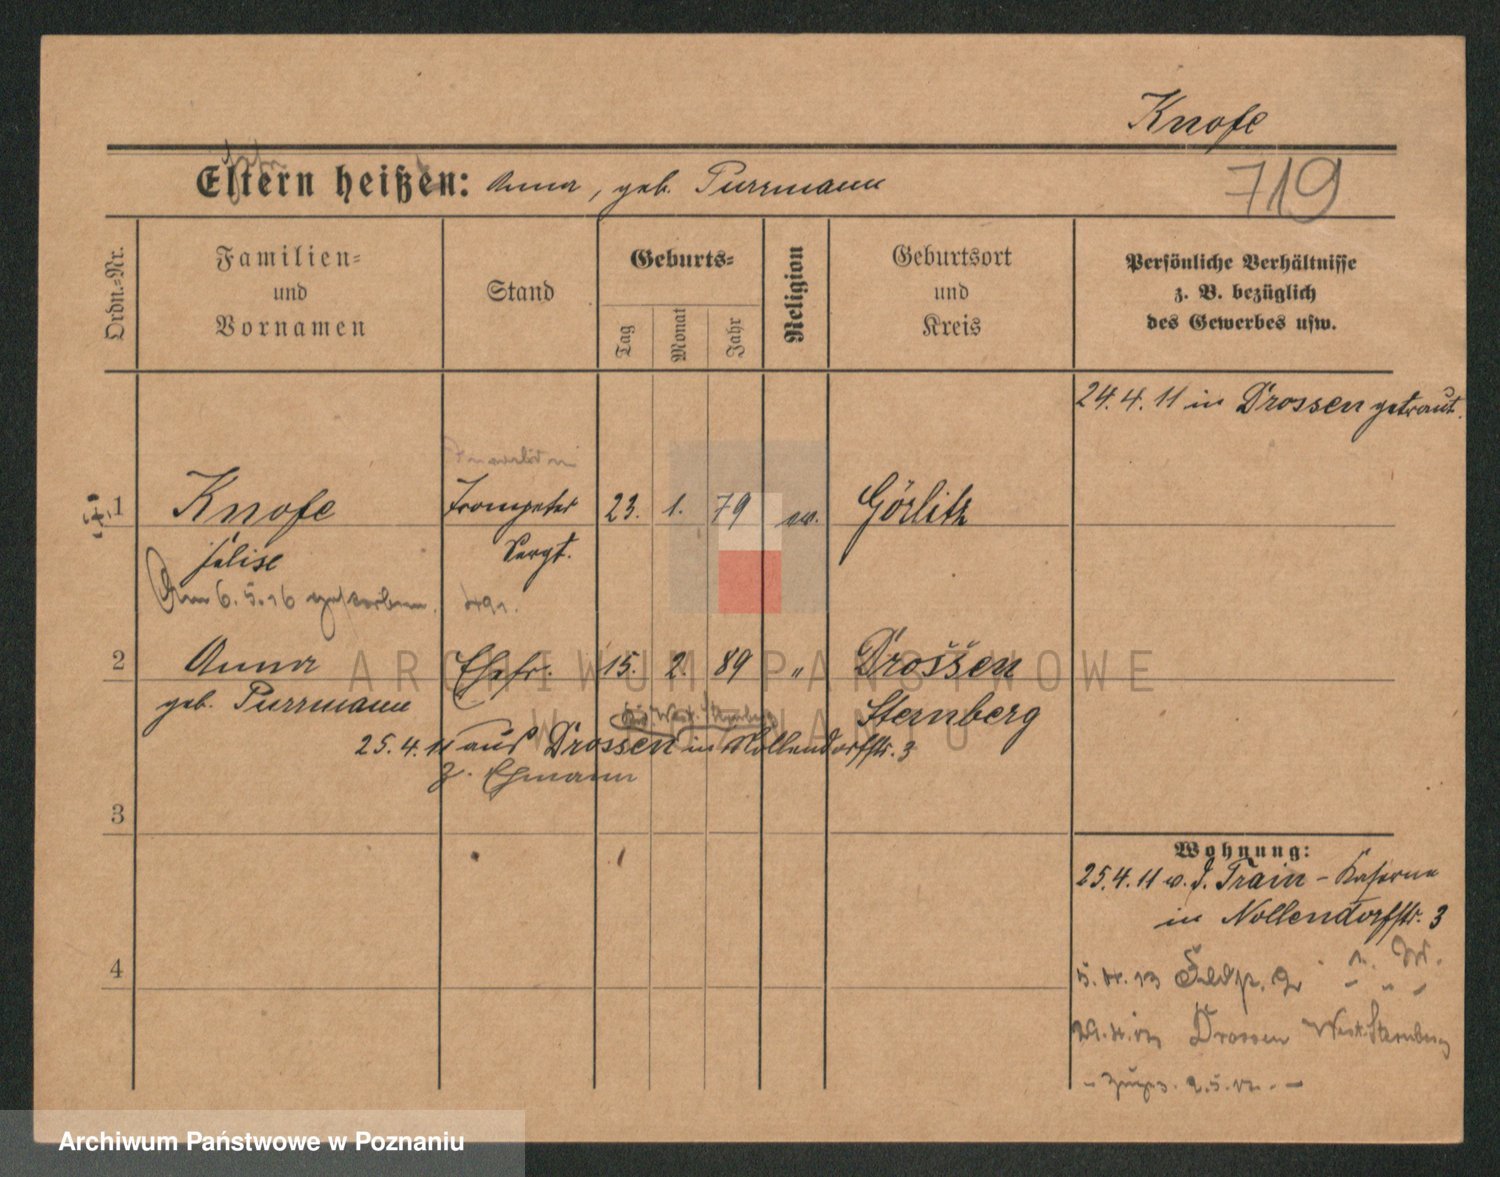 Knofe
Eltern heißen: Anna, geb. Purrmann
719
Ordn.-Nr.
Familien-
und
Vornamen
Stand
Geburts-
Tag
Monat
Jahr
Religion
Geburtsort
und
Kreis
Persönliche Verhältnisse
z. B. bezüglich
des Gewerbes usw.
24.4.11 in Drossen getraut.
1 Knofe Trompeter 23. 1. 79 ev. Görlitz
Felise Sergt.
Am 6.5.16 gestorben.
2 Anna Ehefr. 15. 2. 89 " Drossen
geb. Purrmann Sternberg
West. Sternberg
25.4.11 aus Drossen in Nollendorfstr. 3
z. Ehmann
3
Wohnung:
25.4.11 v. d. Train-Kaserne
in Nollendorfstr. 3
4
Drossen West. Sternberg
ARCHIWUM PAŃSTWOWE
W POZNANIU
Archiwum Państwowe w Poznaniu